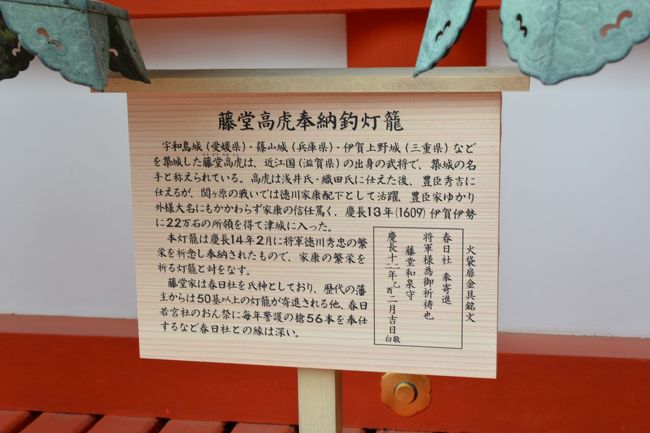 藤堂高虎奉納釣灯籠
宇和島城(愛媛県)・篠山城(兵庫県)・伊賀上野城(三重県)など
を築城した藤堂高虎は、近江国(滋賀県)の出身の武将で、築城の名
手と称えられている。高虎は浅井氏・織田氏に仕えた後、豊臣秀吉に
仕えるが、関ヶ原の戦いでは徳川家康配下として活躍、豊臣家ゆかり
外様大名にもかかわらず家康の信任篤く、慶長13年(1609)伊賀伊勢
に22万石の所領を得て津城に入った。
本灯籠は慶長14年2月に将軍徳川秀忠の繁
栄を祈念し奉納されたもので、家康の繁栄を
祈る灯籠と対をなす。
藤堂家は春日社を氏神としており、歴代の藩
主からは50基以上の灯籠が寄進される他、春日
若宮社のおん祭に毎年警護の槍56本を奉仕
するなど春日社との縁は深い。
火袋扉金具銘文
春日社 奉寄進
将軍様為御祈祷也
藤堂和泉守
慶長十二年乙酉二月吉日敬白